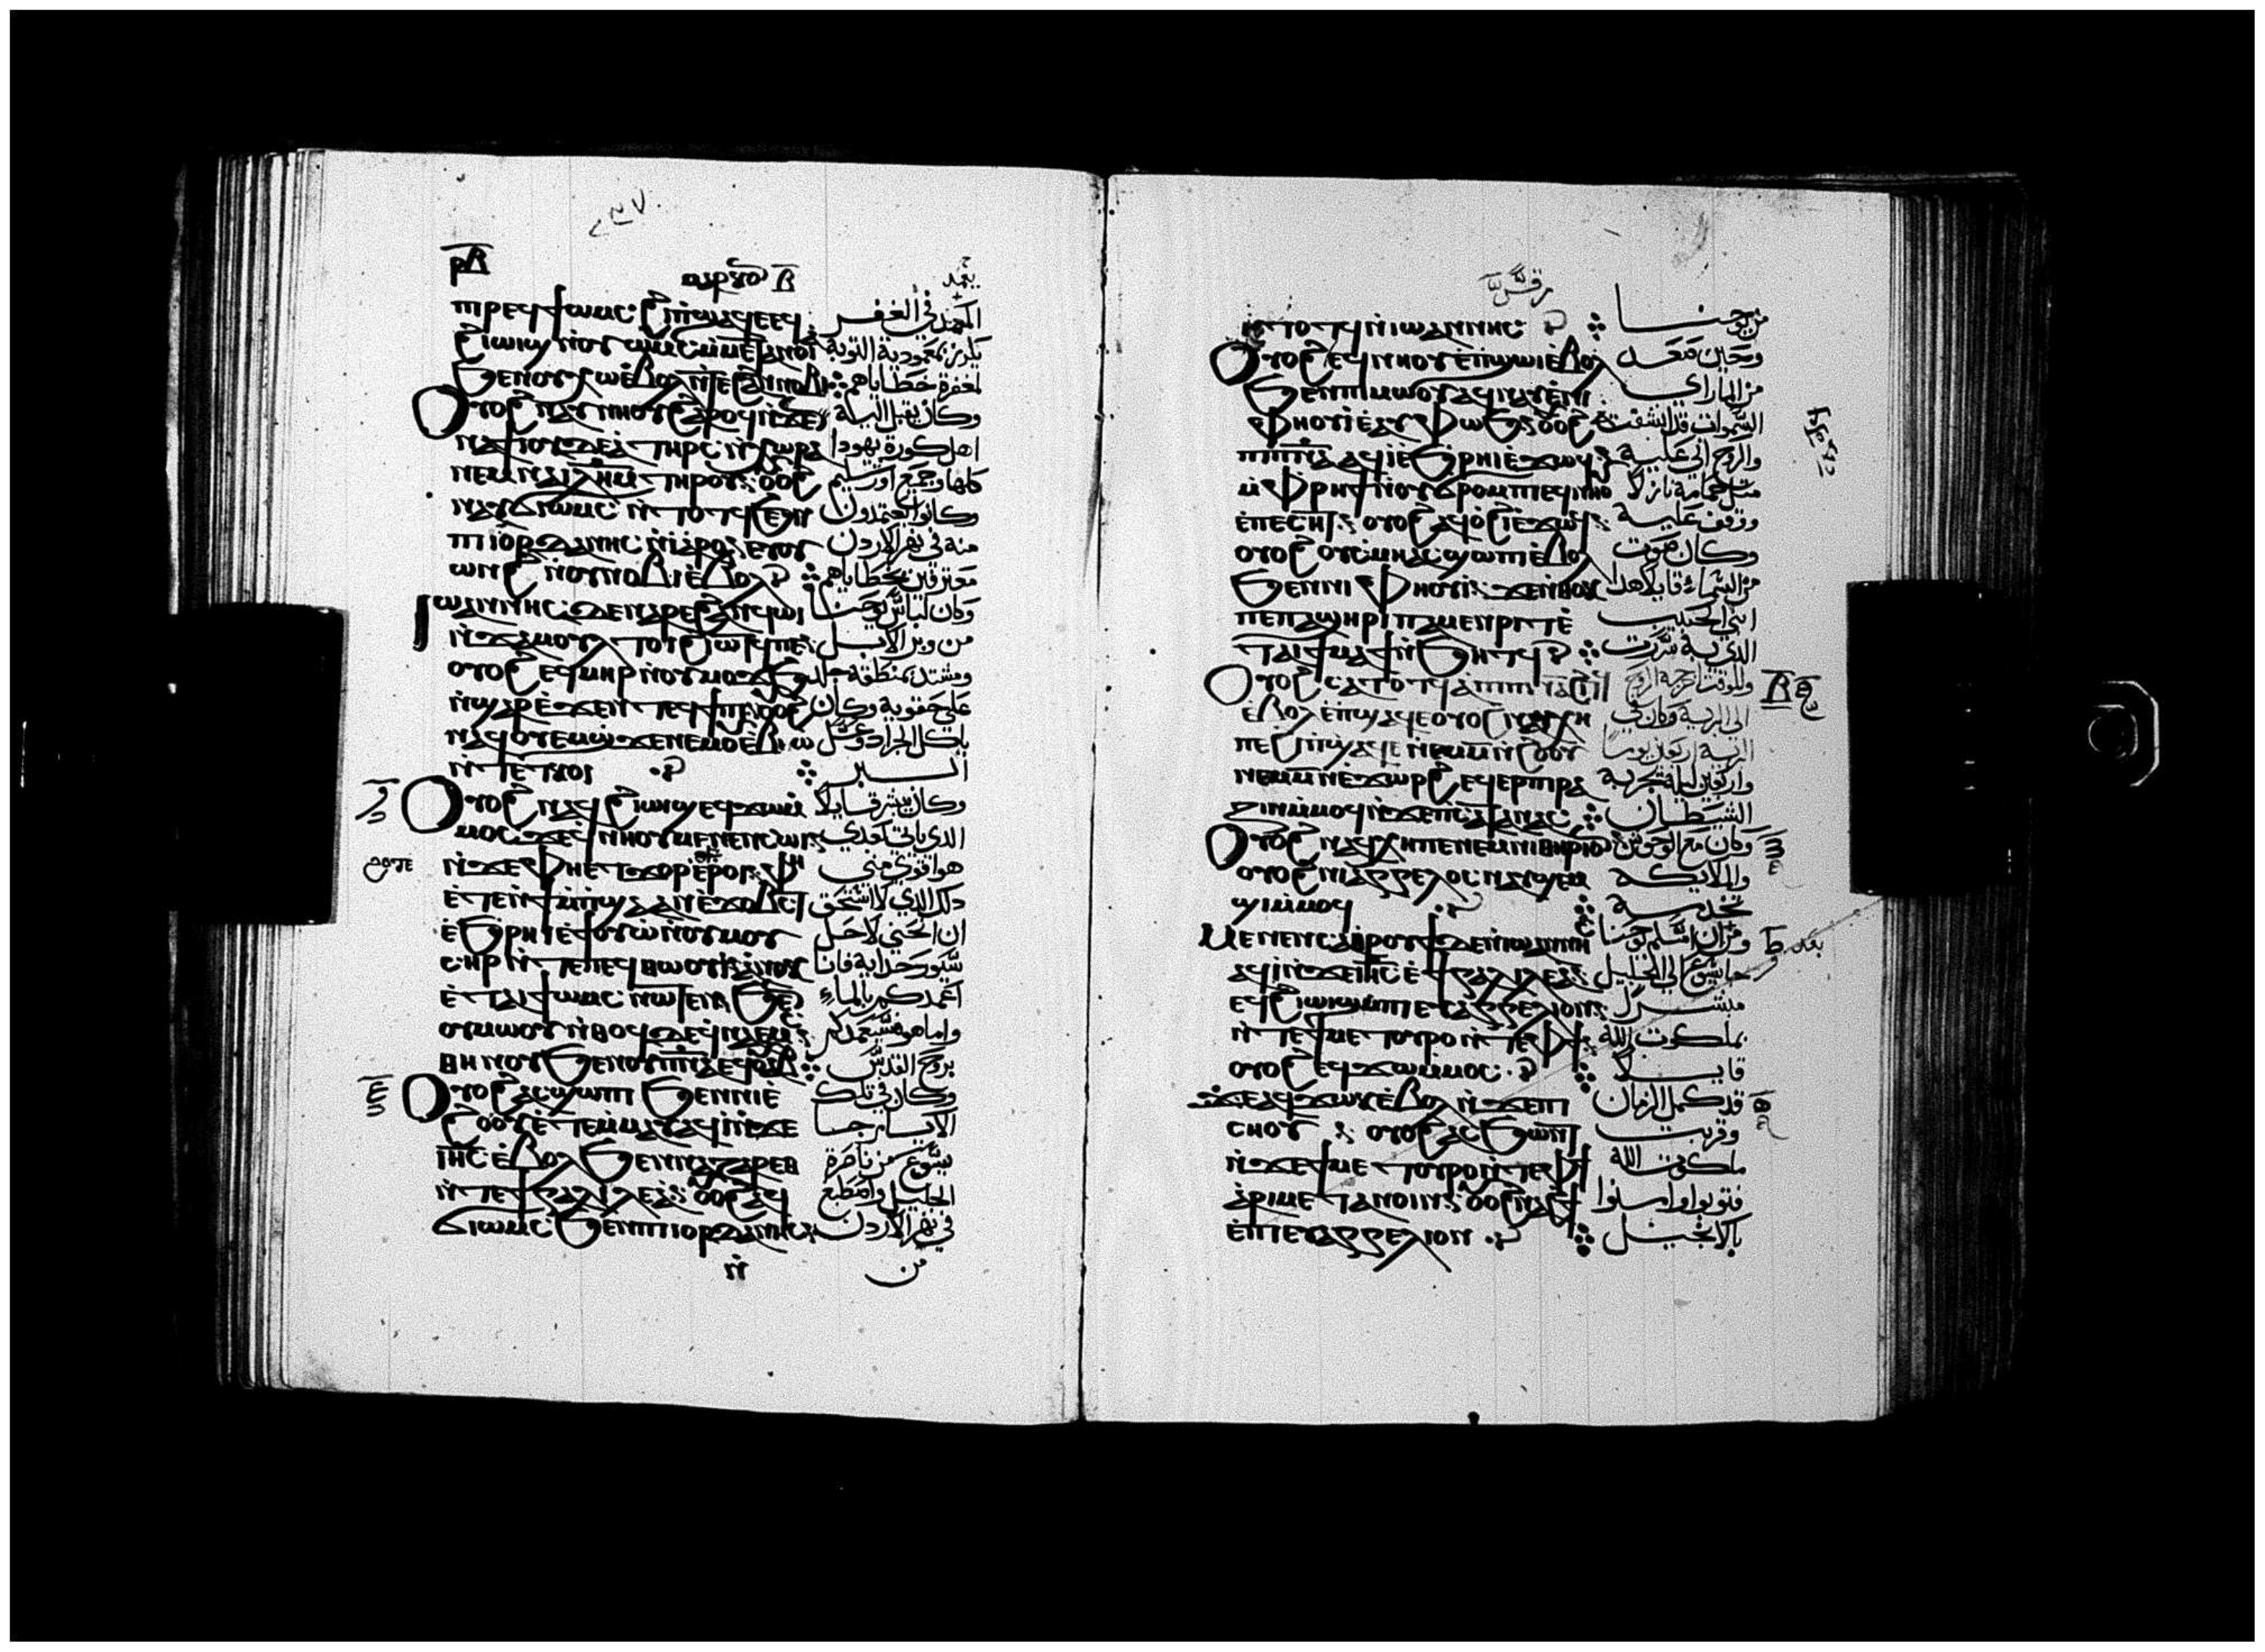 ⲣⲃ
ⲡⲣⲉϥϯⲱⲙⲥ ϩⲓⲡϣⲁϥⲉ ⲉϥ المعمد في القفر
ϩⲓⲱⲓϣ ⲛⲟⲩⲱⲙⲥ ⲙⲙⲉⲧⲁⲛⲟⲓⲁ يكرز بمعمودية التوبة
ϧⲉⲛⲟⲩⲭⲱ ⲉⲃⲟⲗ ⲛⲧⲉϩⲁⲛⲛⲟⲃⲓ لمغفرة خطاياهم
ⲟⲩⲟϩ ⲛⲁⲩⲛⲏⲟⲩ ϩⲁⲣⲟϥ ⲛϫⲉ وكان يقبل اليه
ⲛⲁϯⲓⲟⲩⲇⲉⲁ ⲧⲏⲣⲥ ⲛⲭⲱⲣⲁ اهل كورة يهودا
ⲛⲉⲙ ⲛⲁⲓⲗⲏⲙ ⲧⲏⲣⲟⲩ ⲟⲩⲟϩ كلها وجميع اورشليم
ⲛⲁⲩϭⲓⲱⲙⲥ ⲛⲧⲟⲧϥ ϧⲉⲛ وكانوا يعتمدون
ⲡⲓⲓⲟⲣⲇⲁⲛⲏⲥ ⲛⲓⲁⲣⲟ ⲉⲩⲟⲩ منه في نهر الاردن
ⲱⲛϩ ⲛⲛⲟⲩⲛⲟⲃⲓ ⲉⲃⲟⲗ معترفين بخطاياهم
ⲓⲱⲁⲛⲛⲏⲥ ⲇⲉ ⲛⲁⲣⲉ ϩⲁⲛϥⲱⲓ وكان لباس يوحنا
ⲛϫⲁⲙⲟⲩⲗ ⲧⲟⲓ ϩⲓⲱⲧϥ ⲡⲉ من وبر الابل
ⲟⲩⲟϩ ⲉϥⲙⲏⲣ ⲛⲟⲩⲙⲟϫϧ ومشتد بمنطقة جلد
ⲛϣⲁⲣ ⲉϫⲉⲛ ⲧⲉϥϯⲡⲓ ⲟⲩⲟϩ على حقويه وكان
ⲛⲁϥⲟⲩⲉⲙ ϣϫⲉ ⲛⲉⲙ ⲉⲃⲓⲱ ياكل الجراد وعسل
ⲛⲧⲉⲧⲕⲟⲓ البر
ⲟⲩⲟϩ ⲛⲁϥϩⲓⲱⲓϣ ⲉϥϫⲱ ⲙ وكان يبشر قايلا
ⲙⲟⲥ ϫⲉ ϥⲛⲏⲟⲩ ⲙⲉⲛⲉⲛⲥⲱⲓ الذي ياتي بعدي
ⲛϫⲉ ⲫⲏⲉⲧϫⲟⲣ ⲉⲣⲟⲓ ⲫⲏ هو اقوى مني
ⲉⲧⲉⲛϯⲙⲡϣⲁ ⲁⲛ ⲉⲭⲟⲃⲥⲧ ذلك الذي لا استحق
ⲉϧⲣⲏⲓ ⲉϯⲟⲩⲱ ⲛⲟⲩⲙⲟⲩ ان انحني لاحل
ⲥⲏⲣ ⲛⲧⲉ ⲡⲉϥⲑⲱⲟⲩⲓ ⲁⲛⲟⲕ سيور حدايه فانا
ⲉⲧⲁⲓϯⲱⲙⲥ ⲛⲱⲧⲉⲛ ϧⲉⲛ اعمدكم بالماء
ⲟⲩⲙⲱⲟⲩ ⲛⲑⲟϥ ⲇⲉ ϥⲛⲁⲉⲙⲥ واما هو فسيعمدكم
ⲑⲏⲛⲟⲩ ϧⲉⲛ ⲟⲩⲡⲛⲁ ⲉϥⲟⲩⲁⲃ بروح القدس
ⲟⲩⲟϩ ⲁⲥϣⲱⲡⲓ ϧⲉⲛ ⲛⲓⲉ وكان في تلك
ϩⲟⲟⲩ ⲉⲧⲉⲙⲙⲁⲩ ⲁϥⲓ ⲛϫⲉ الايام جا
ⲓⲏⲥ ⲉⲃⲟⲗ ϧⲉⲛ ⲛⲁⲍⲁⲣⲉⲑ يسوع من ناصرة
ⲛⲧⲉ ϯⲅⲁⲗⲓⲗⲉⲁ ⲟⲩⲟϩ ⲁϥ الجليل واصطبغ
ϭⲓⲱⲙⲥ ϧⲉⲛ ⲡⲓⲓⲟⲣⲇⲁⲛⲏⲥ في نهر الاردن
ⲛ من
ⲛⲧⲟⲧϥ ⲛⲓⲱⲁⲛⲛⲏⲥ من يوحنا
ⲟⲩⲟϩ ⲉϥⲛⲏⲟⲩ ⲉⲡϣⲱⲓ ⲉⲃⲟⲗ وحين صعد
ϧⲉⲛ ⲡⲓⲙⲱⲟⲩ ⲁϥⲛⲁⲩ ⲉⲛⲓ من الما راى
ⲫⲏⲟⲩⲓ ⲉⲁⲩⲫⲱϧ ⲟⲩⲟϩ السموات قد انشقت
ⲡⲓⲡⲛⲁ ⲁϥⲓ ⲉϧⲣⲏⲓ ⲉϫⲱϥ والروح اتى عليه
ⲙⲫⲣⲏϯ ⲛⲟⲩϭⲣⲟⲙⲡⲓ ⲉϥⲛⲏⲟⲩ مثل حمامة نازلا
ⲉⲡⲉⲥⲏⲧ ⲟⲩⲟϩ ⲁϥⲟϩⲓ ⲉϫⲱϥ ووقف عليه
ⲟⲩⲟϩ ⲟⲩⲥⲙⲏ ⲁⲥϣⲱⲡⲓ ⲉⲃⲟⲗ وكان صوت
ϧⲉⲛ ⲛⲓⲫⲏⲟⲩⲓ ϫⲉ ⲛⲑⲟⲕ من السماء قايلا هذا
ⲡⲉ ⲡⲁϣⲏⲣⲓ ⲡⲁⲙⲉⲛⲣⲓⲧ ⲉ ابني الحبيب
ⲧⲁⲓϯⲙⲁϯ ⲛϧⲏⲧϥ الذي به سررت
ⲟⲩⲟϩ ⲥⲁⲧⲟⲧϥ ⲁ ⲡⲓⲡⲛⲁ وللوقت اخرجه الروح
ⲉⲃⲟⲗ ⲉⲡϣⲁϥⲉ ⲟⲩⲟϩ ⲛⲁϥⲭⲏ الى البرية وكان في
ⲡⲉ ϩⲓ ⲡϣⲁϥⲉ ⲛⲙ ⲛⲉϩⲟⲟⲩ البرية اربعين يوما
ⲛⲉⲙ ⲙ ⲛⲉϫⲱⲣϩ ⲉϥⲉⲣⲡⲓⲣⲁ واربعين ليلة تجربه
ⲍⲓⲛ ⲙⲙⲟϥ ⲛϫⲉ ⲡⲥⲁⲧⲁⲛⲁⲥ الشيطان
ⲟⲩⲟϩ ⲛⲁϥⲭⲏ ⲡⲉ ⲛⲉⲙ ⲛⲓⲑⲏⲣⲓⲟⲛ وكان مع الوحوش
ⲟⲩⲟϩ ⲛⲓⲁⲅⲅⲉⲗⲟⲥ ⲛⲁⲩϣⲉⲙ والملايكه
ϣⲓ ⲙⲙⲟϥ تخدمه
ⲙⲉⲛⲉⲛⲥⲁ ⲑⲣⲟⲩϯ ⲇⲉ ⲛⲓⲱⲁⲛⲛⲏⲥ ومن ان اسلم يوحنا
ⲁϥⲓ ⲛϫⲉ ⲓⲏⲥ ⲉϯⲅⲁⲗⲓⲗⲉⲁ جا يسوع الى الجليل
ⲉϥϩⲓⲱⲓϣ ⲙⲡⲓⲉⲩⲁⲅⲅⲉⲗⲓⲟⲛ مبشرا
ⲛⲧⲉ ϯⲙⲉⲧⲟⲩⲣⲟ ⲛⲧⲉ ⲫϯ بملكوت الله
ⲟⲩⲟϩ ⲉϥϫⲱ ⲙⲙⲟⲥ قايلا
ϫⲉ ⲁϥϫⲱⲕ ⲉⲃⲟⲗ ⲛϫⲉ ⲡⲓ قد كمل الزمان
ⲥⲏⲟⲩ ⲟⲩⲟϩ ⲁⲥϧⲱⲛⲧ وقربت
ⲛϫⲉ ϯⲙⲉⲧⲟⲩⲣⲟ ⲛⲧⲉ ⲫϯ ملكوت الله
ⲁⲣⲓⲙⲉⲧⲁⲛⲟⲓⲛ ⲟⲩⲟϩ ⲛⲁϩϯ فتوبوا وامنوا
ⲉⲡⲓⲉⲩⲁⲅⲅⲉⲗⲓⲟⲛ بالانجيل